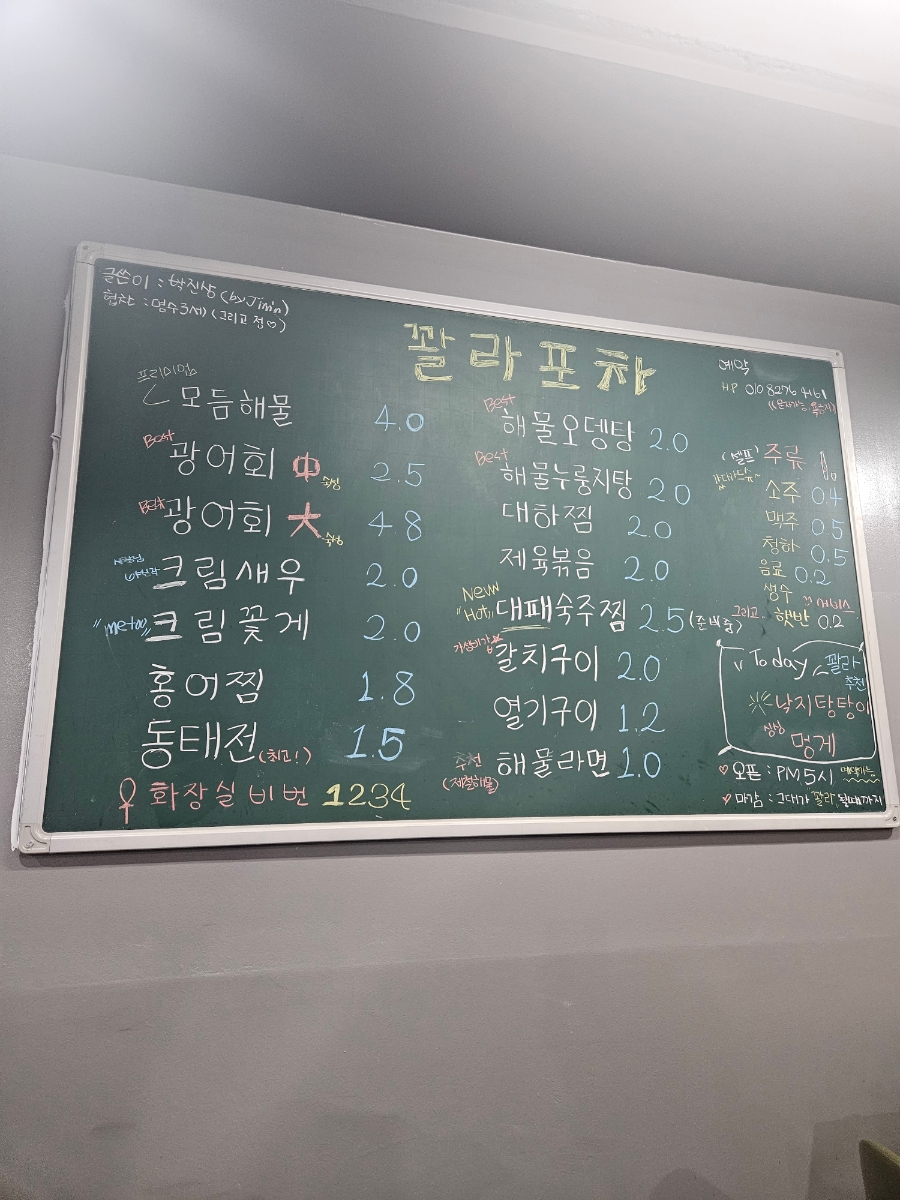 글쓴이 : 박진상 (by Jimin)
협찬 : 명수3세) (그리고 정♡)
꽐라포차
예약
HP 010 8276 4161
프리미엄
모듬해물 4.0
Best 광어회 中 싱싱 2.5
Best 광어회 大 싱싱 4.8
크림새우 2.0
"metoo" 크림꽃게 2.0
홍어찜 1.8
동태전 (최고!) 1.5
화장실 비번 1234
Best 해물오뎅탕 2.0
Best 해물누룽지탕 2.0
대하찜 2.0
제육볶음 2.0
New "Hot" 대패숙주찜 2.5 (준비중)
갈치구이 2.0
열기구이 1.2
추천 (제철해물) 해물라면 1.0
(셀프) 주류
소주 0.4
맥주 0.5
청하 0.5
음료 0.2
생수 서비스
그리고 햇반 0.2
Today 꽐라 추천
낙지탕탕이
싱싱 멍게
♡ 오픈 : PM 5시 예약가능
♡ 마감 : 그대가 꽐라 될때까지